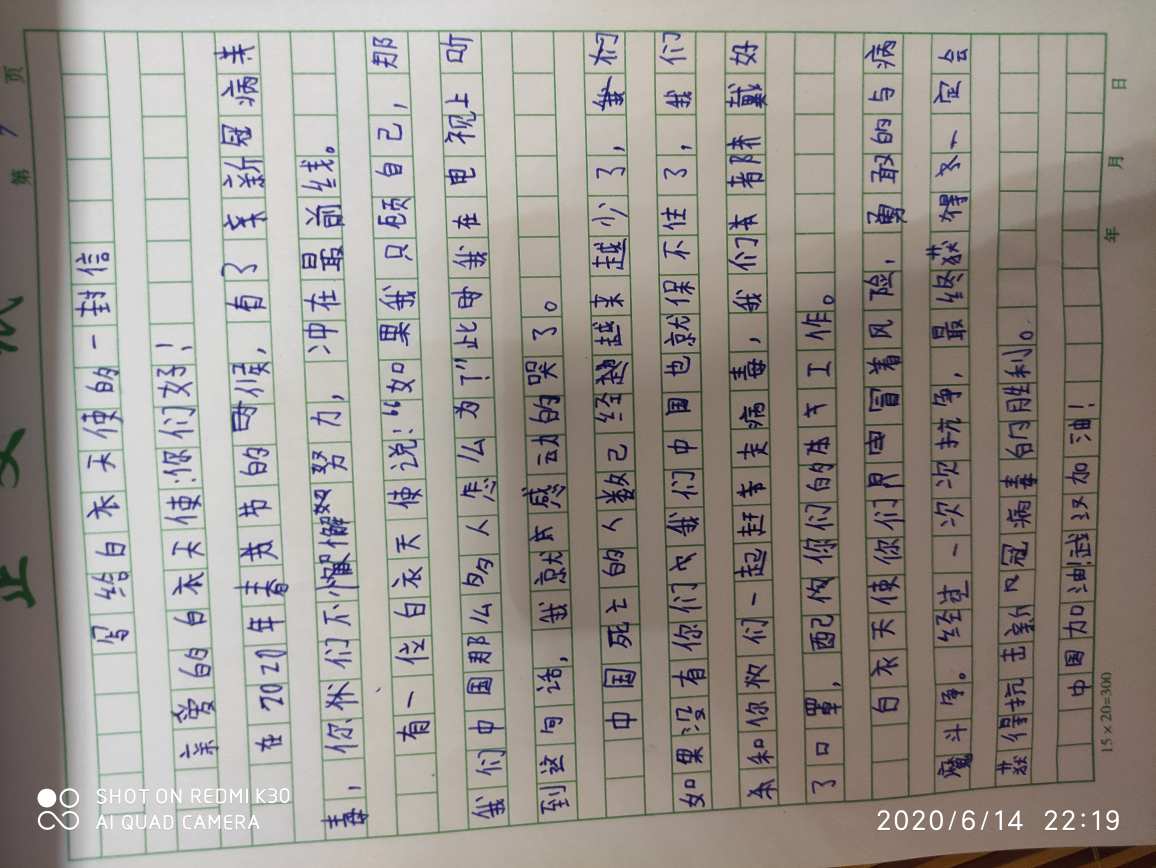 第 7 页
写给白衣天使的一封信
亲爱的白衣天使:你们好!
在2020年春节的时候,有了来新冠病
毒,你们不懈努力,冲在最前线。
有一位白衣天使说:“如果我只顾自己,那
我们中国那么多人怎么为了!”此时我在电视上听
到这句话,我就感动的哭了。
中国死亡的人数已经越来越少了,我们
如果没有你们我们中国也就保不住了,我们
和你们一起赶走病毒,我们带戴好
了口罩,配你们的工作。
白衣天使你们冒着风险,勇敢的与病
魔斗争。经过一次次抗争,最终获得又一定会
获得抗击新冠病毒的胜利。
中国加油!武汉加油!
15×20=300
年 月 日
SHOT ON REDMI K30
AI QUAD CAMERA
2020/6/14 22:19